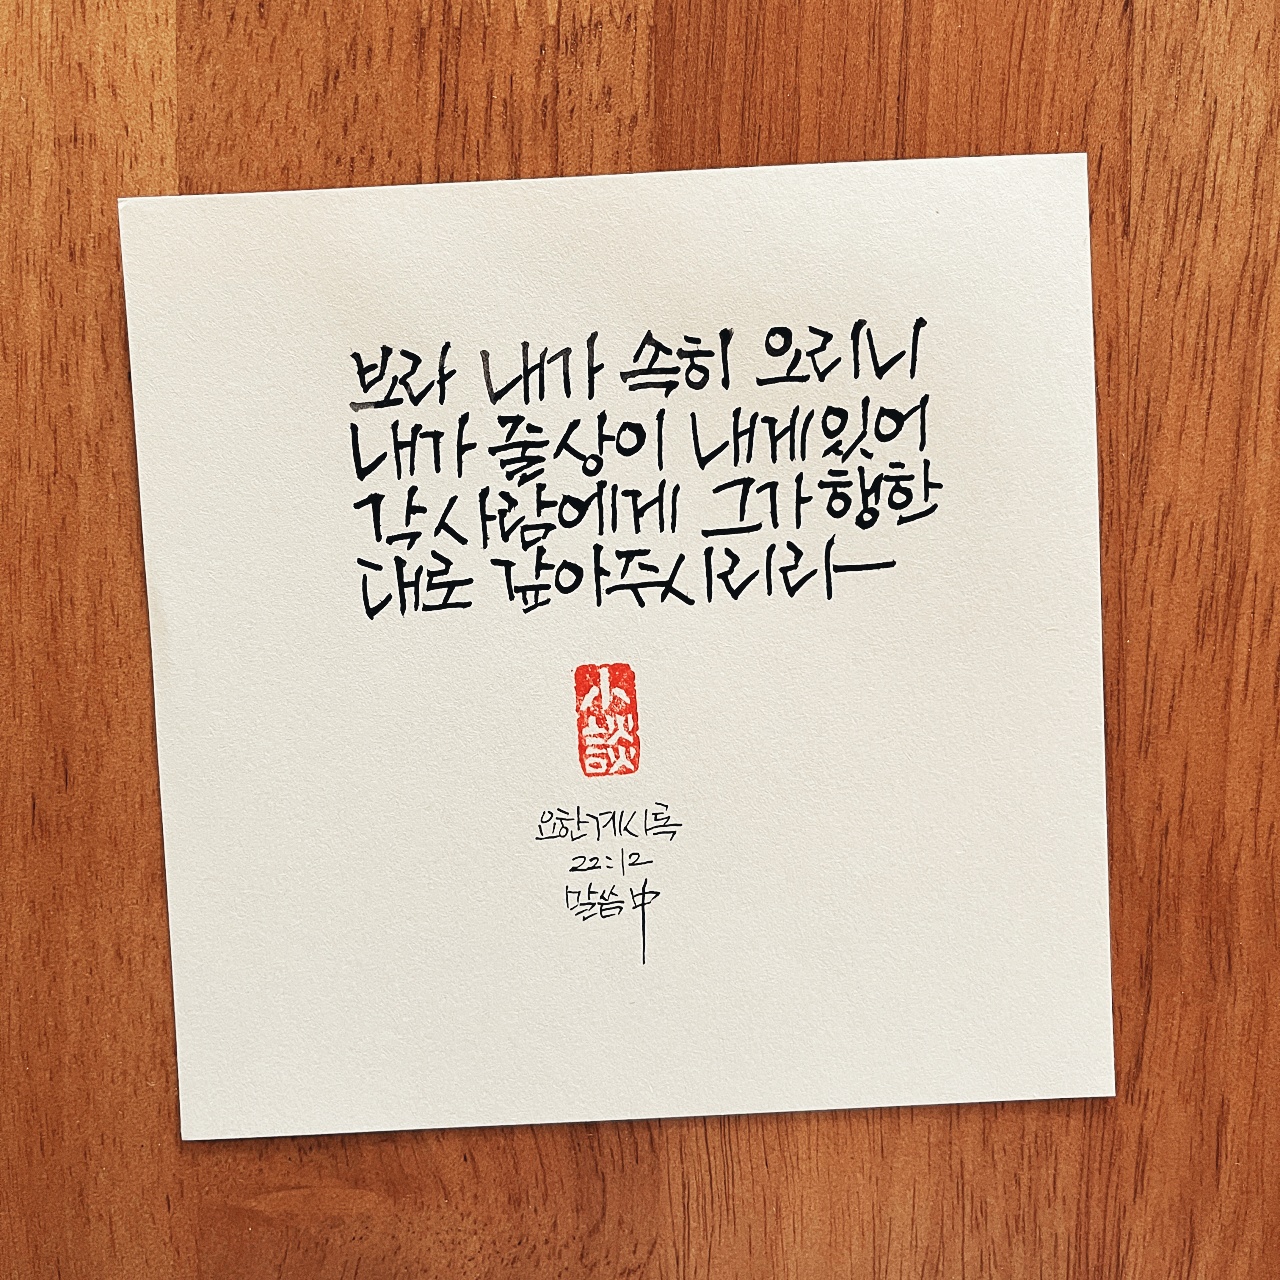 보라 내가 속히 오리니
내가 줄 상이 내게 있어
각 사람에게 그가 행한
대로 갚아 주시리라
小談
요한계시록
22:12
말씀 中